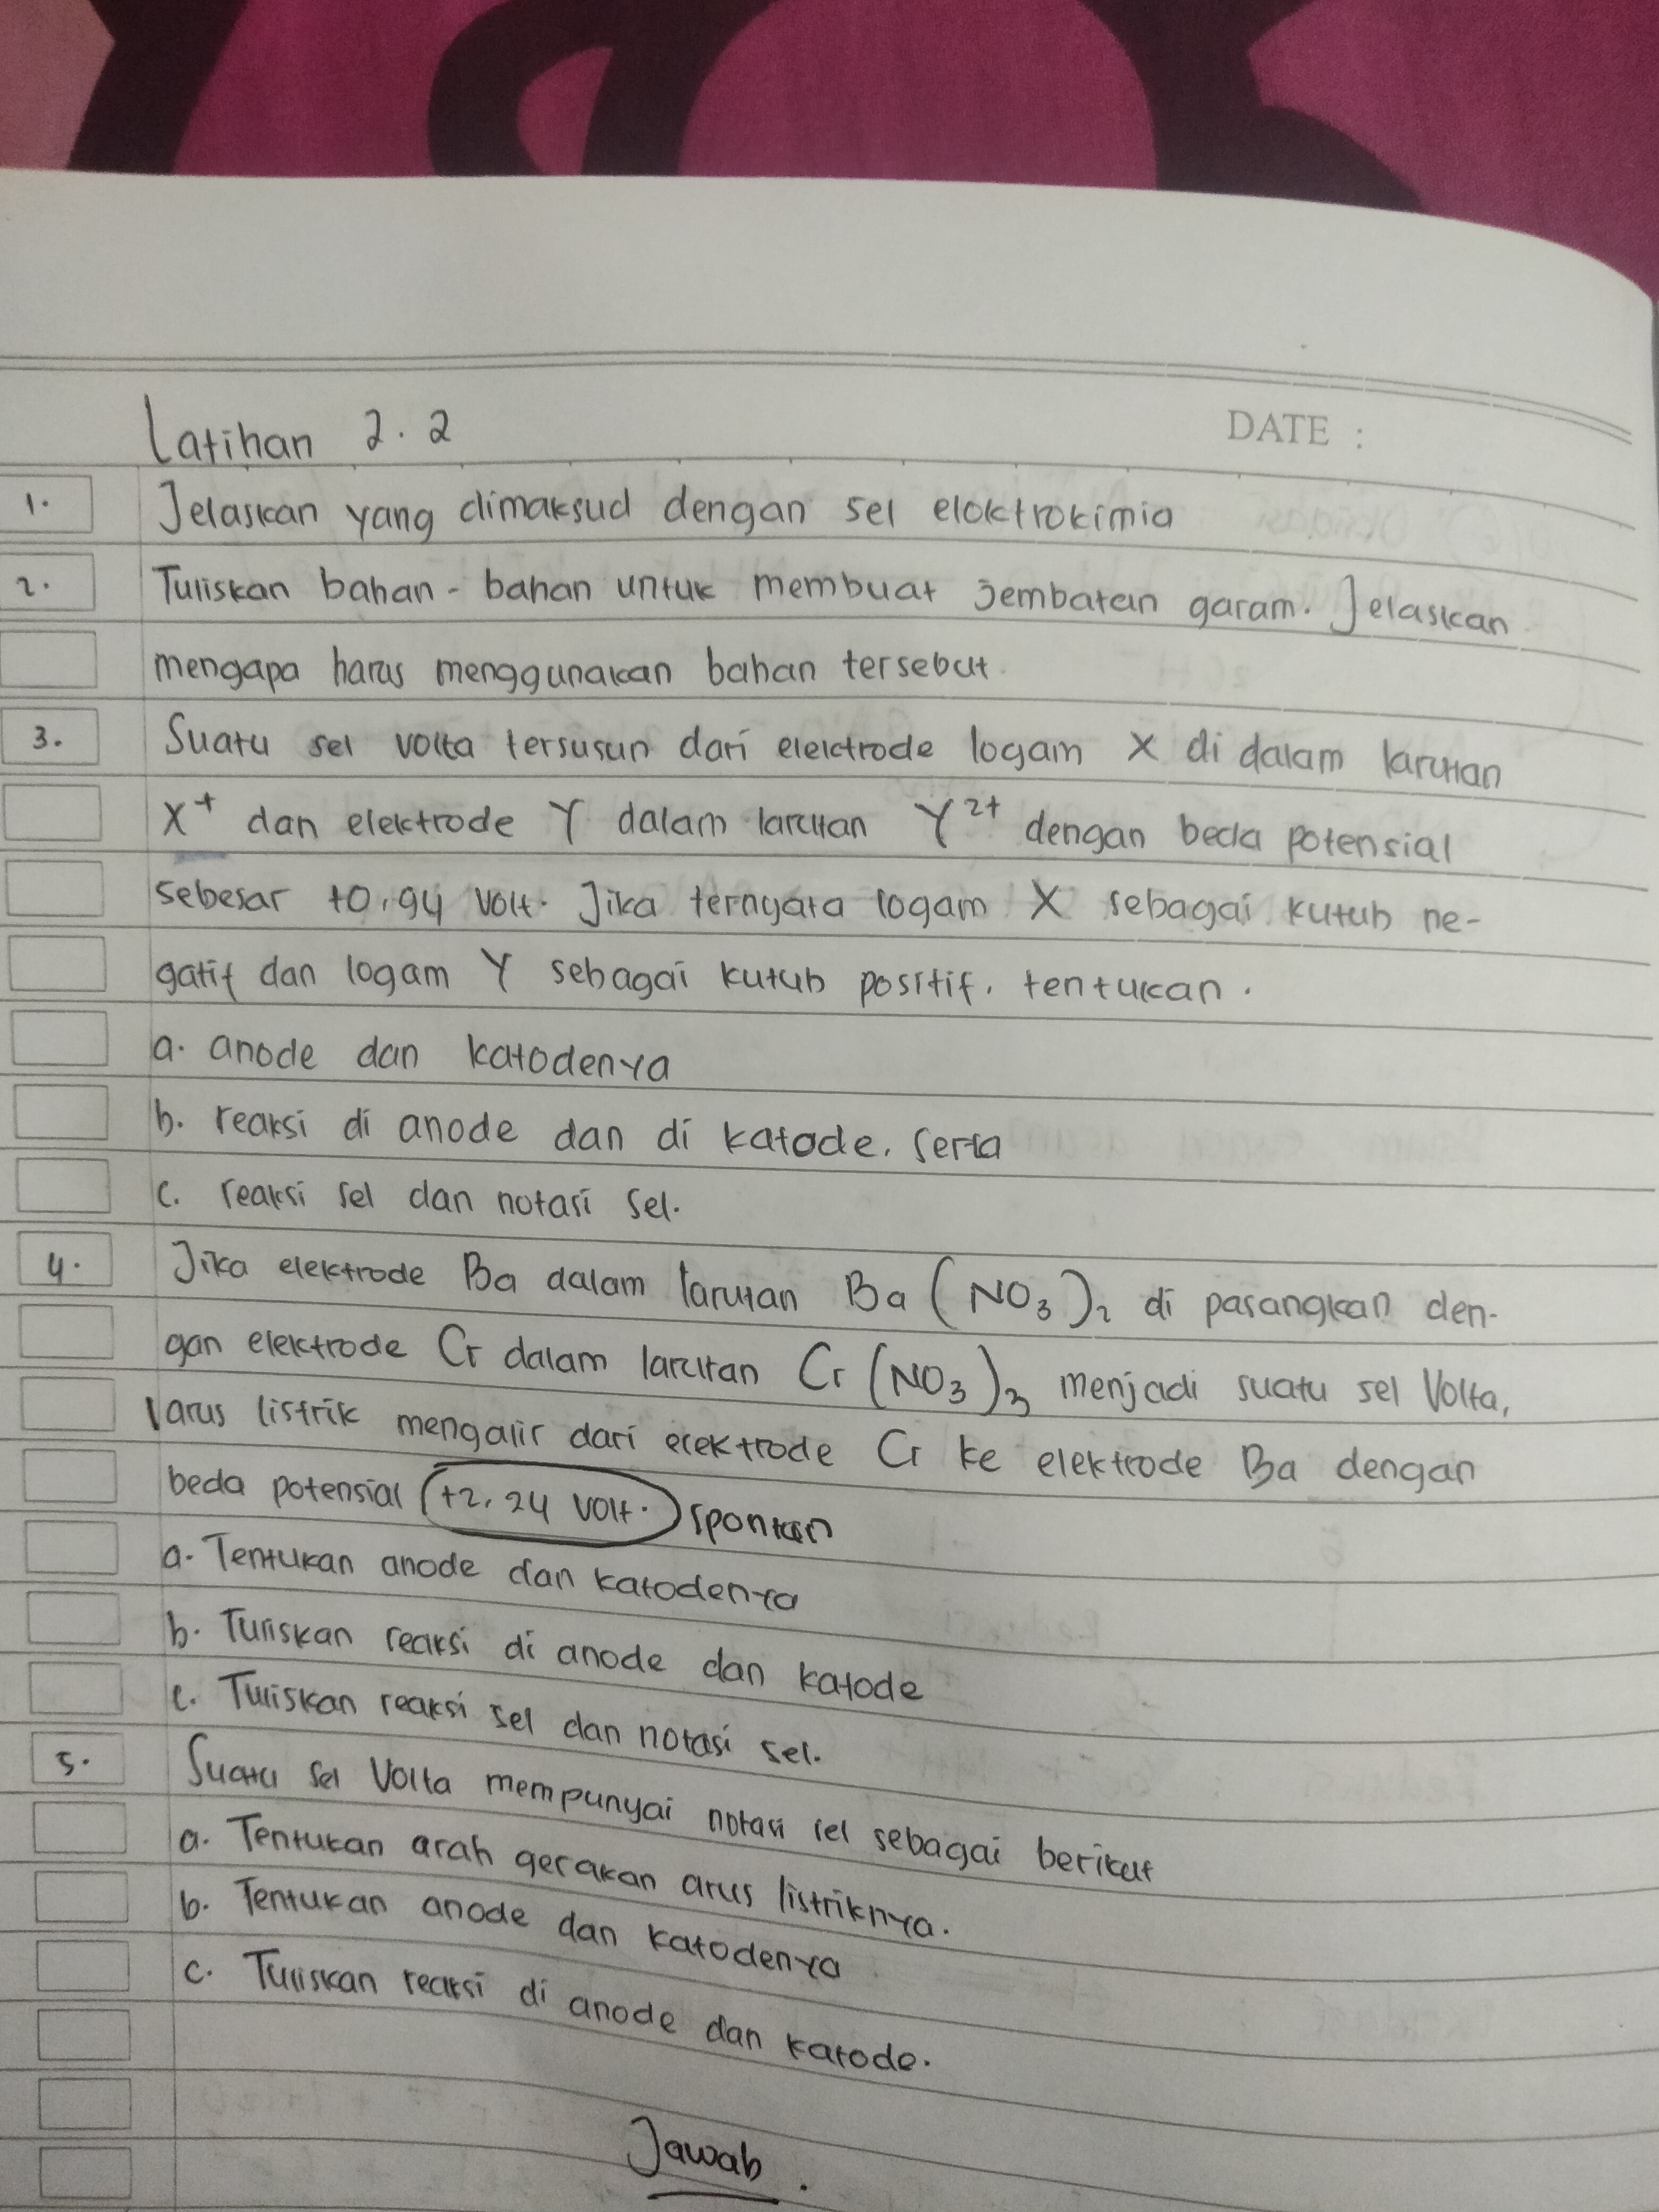 Latihan 2.2
DATE :
1. Jelaskan yang dimaksud dengan sel eloktrokimia
2. Tuliskan bahan - bahan untuk membuat Jembatan garam. Jelaskan
mengapa harus menggunakan bahan tersebut.
3. Suatu sel volta tersusun dari elektrode logam X di dalam larutan
X⁺ dan elektrode Y dalam larutan Y²⁺ dengan beda potensial
sebesar +0,94 volt. Jika ternyata logam X sebagai kutub ne-
gatif dan logam Y sebagai kutub positif, tentukan.
a. anode dan katodenya
b. reaksi di anode dan di katode, serta
c. reaksi sel dan notasi sel.
4. Jika elektrode Ba dalam larutan Ba (NO₃)₂ di pasangkan den-
gan elektrode Cr dalam larutan Cr (NO₃)₃ menjadi suatu sel Volta,
arus listrik mengalir dari elektrode Cr ke elektrode Ba dengan
beda potensial +2,24 volt. spontan
a. Tentukan anode dan katodenya
b. Tuliskan reaksi di anode dan katode
c. Tuliskan reaksi sel dan notasi sel.
5. Suatu sel Volta mempunyai notasi sel sebagai berikut
a. Tentukan arah gerakan arus listriknya.
b. Tentukan anode dan katodenya
c. Tuliskan reaksi di anode dan katode.
Jawab.